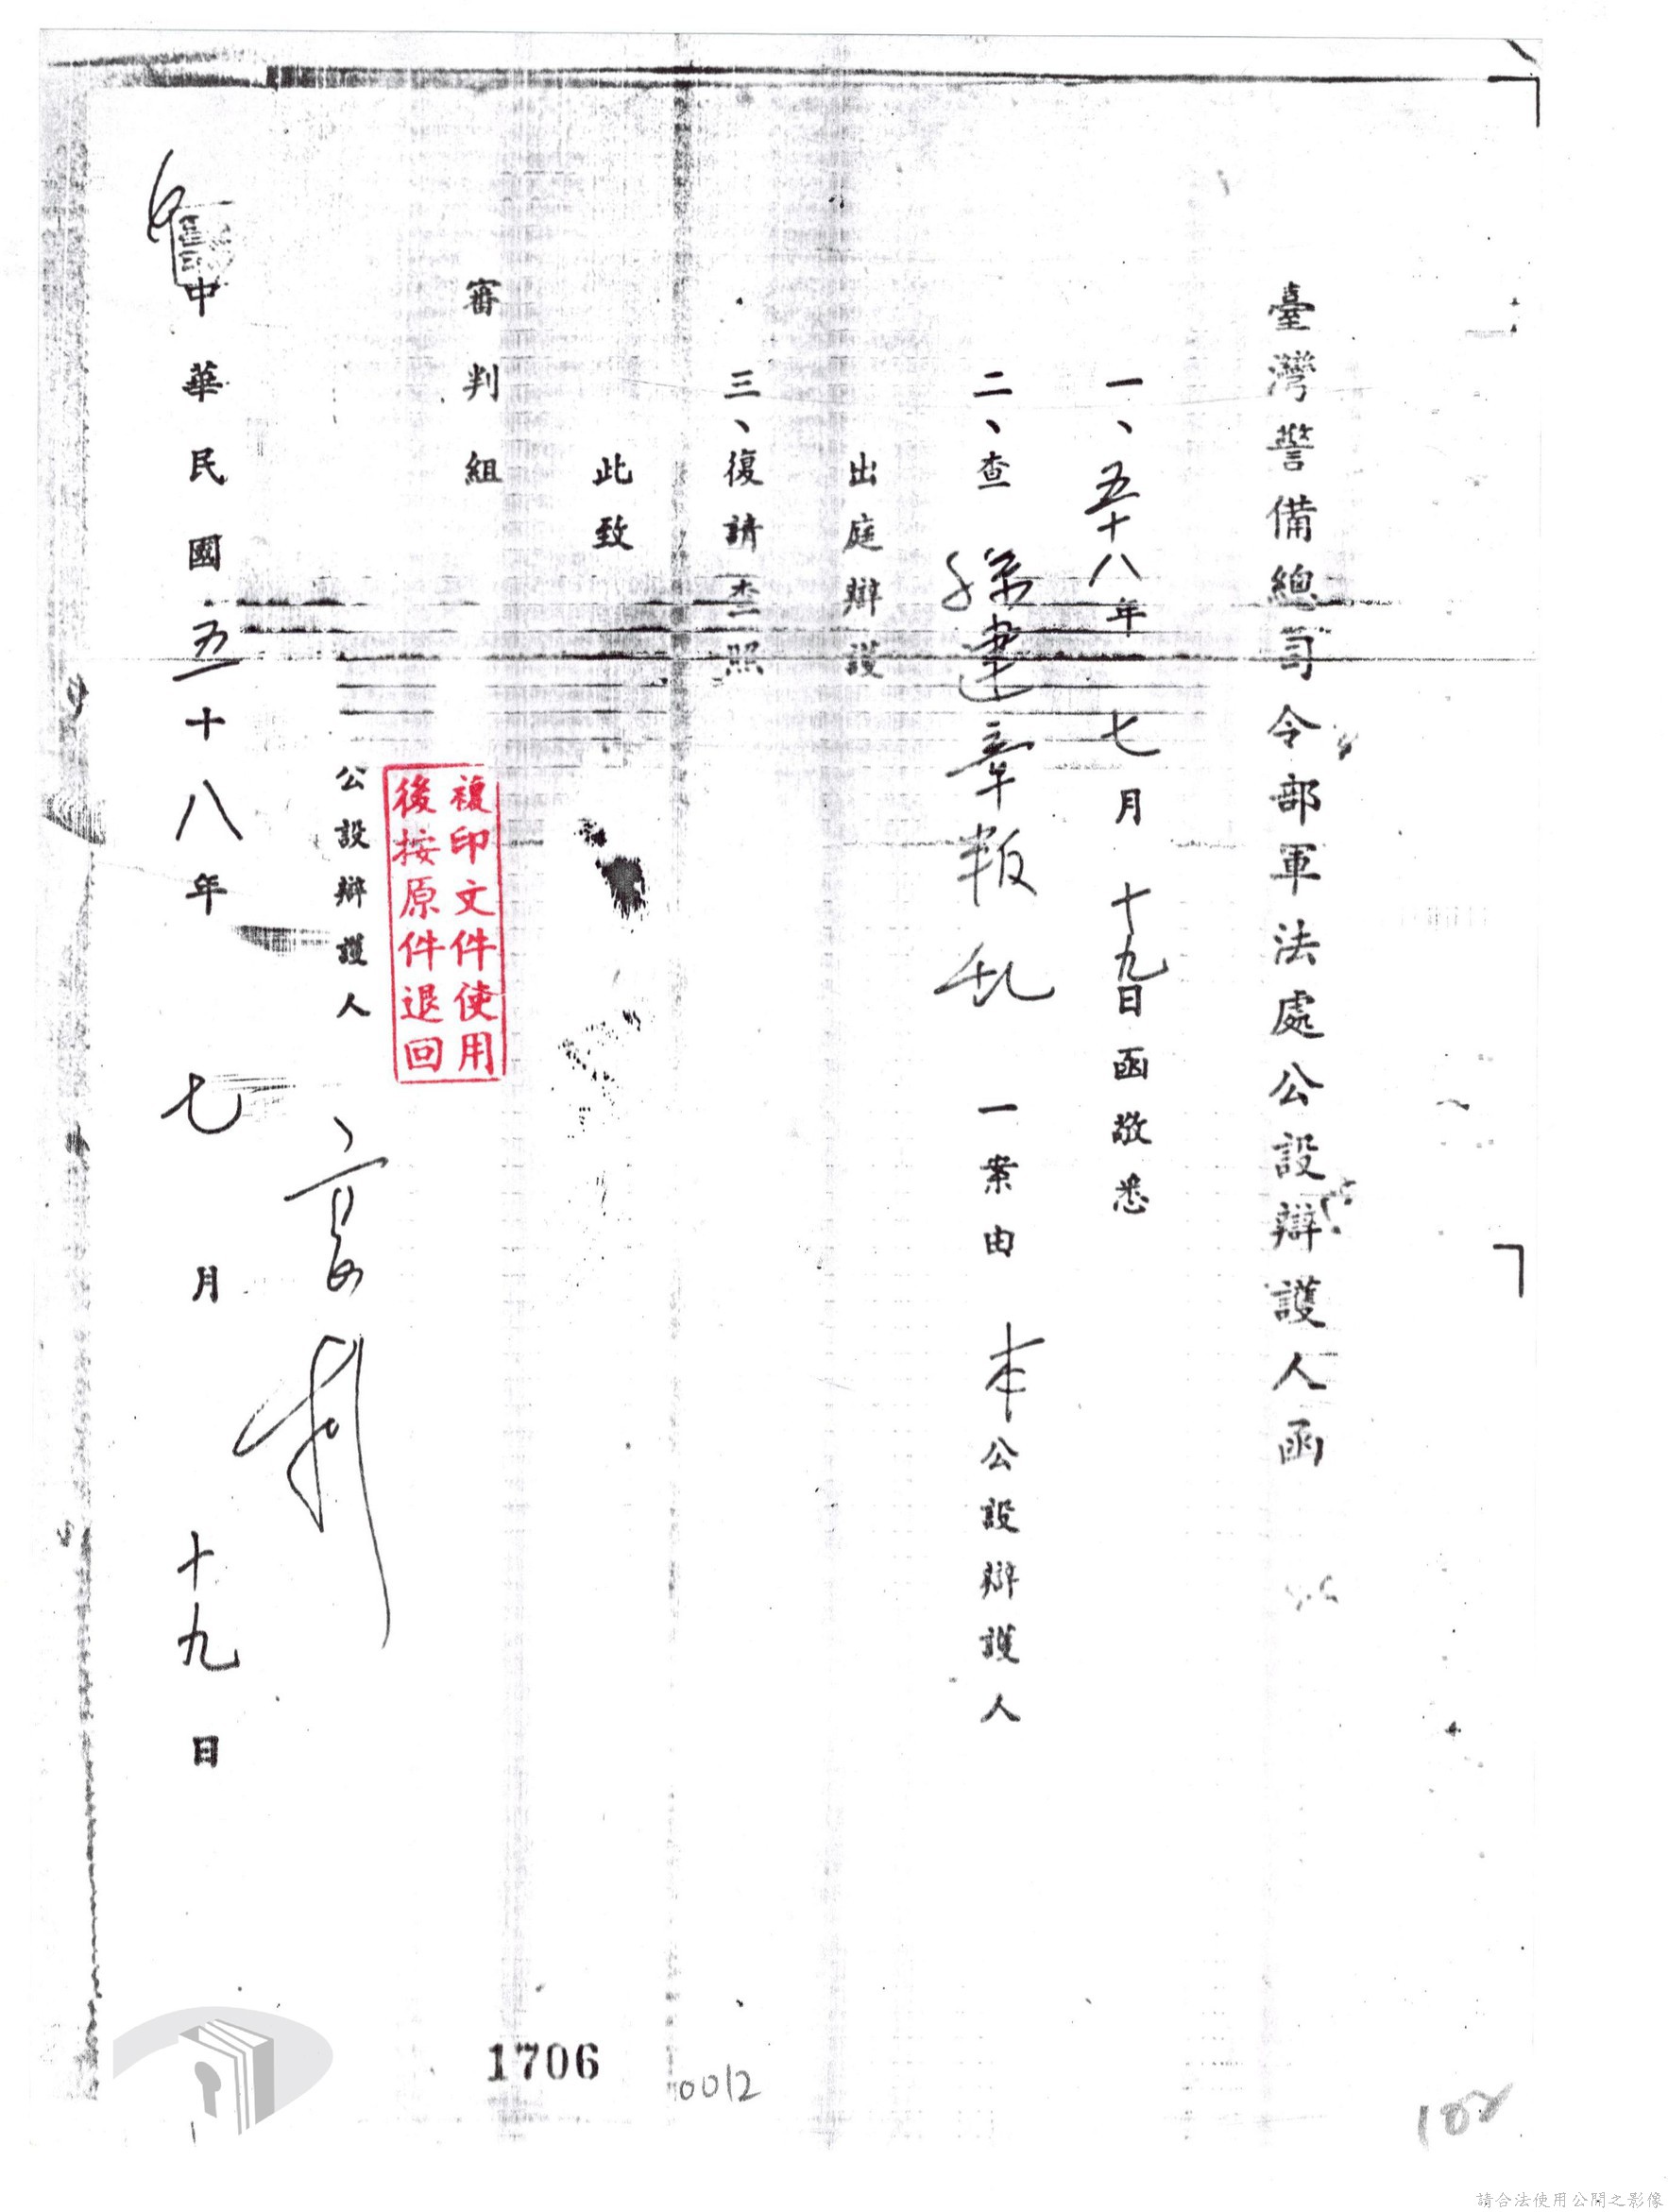 臺灣警備總司令部軍法處公設辯護人函
一、五十八年七月十九日函敬悉
二、查孫建章叛乱一案由本公設辯護人
出庭辯護
三、復請查照
此致
審判組
複印文件使用
後按原件退回
公設辯護人
中華民國五十八年七月十九日
1706
0012
102
請合法使用公開之影像